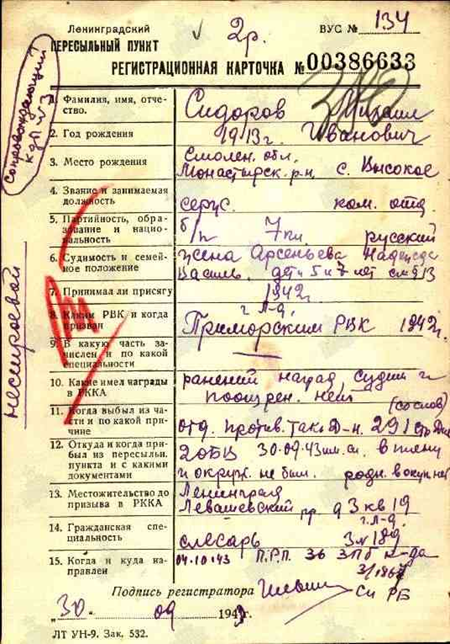 Ленинградский ВУС № 134
ПЕРЕСЫЛЬНЫЙ ПУНКТ 2р.
РЕГИСТРАЦИОННАЯ КАРТОЧКА № 00386633
Сопровождающий
нестроевой
1. Фамилия, имя, отчество. Сидоров Михаил
Иванович
2. Год рождения 1913 г.
3. Место рождения Смолен. обл.
Монастырск. р-н с. Высокое
4. Звание и занимаемая должность серж. ком. отд.
5. Партийность, образование и национальность б/п 7 кл. русский
6. Судимость и семейное положение жена Арсеньева Надежда
Василь. дети 5 и 7 лет см 9/13
7. Принимал ли присягу 1942
8. Каким РВК и когда призван г. Л-д.
Приморским РВК 1942 г.
9. В какую часть зачислен и по какой специальности —
10. Какие имел награды в РККА ранений наград, судим
поощрен. нет
11. Когда выбыл из части и по какой причине (со слов)
отд. против. танк. 291
12. Откуда и когда прибыл из пересыльн. пункта и с какими документами 30.09.43 в плену
и окруж. не был. родн. в окуп. нет
13. Местожительство до призыва в РККА Ленинград
Левашевский пр. д 3 кв 19
г. Л-д.
14. Гражданская специальность слесарь
15. Когда и куда направлен 04.10.43 П.Р.П. 36 ЗПБ
Подпись регистратора
"30" 09 1943 г.
ЛТ УН-9. Зак. 532.